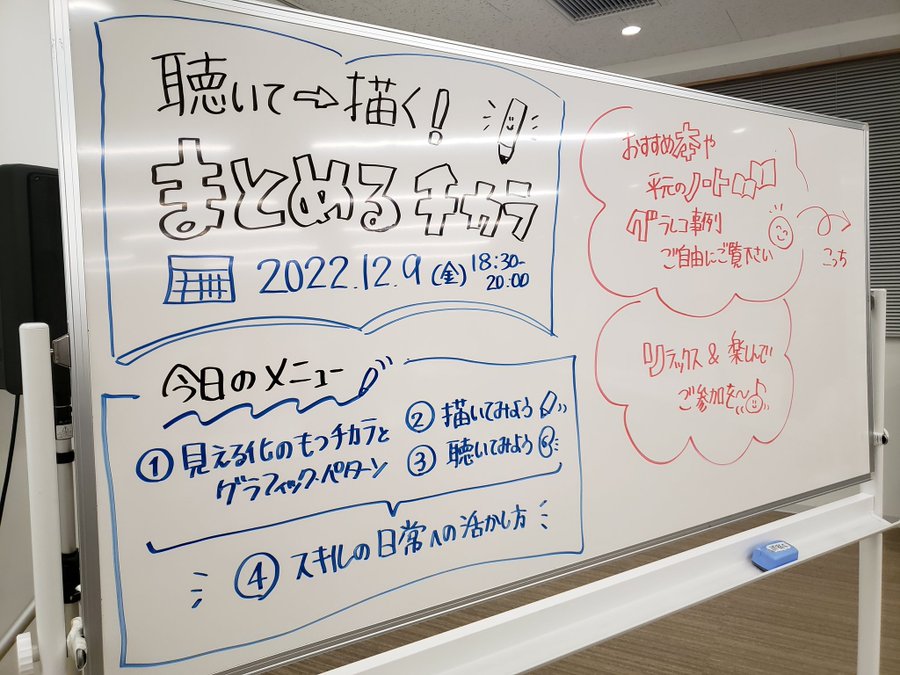 聴いて⇨描く!
まとめるチカラ
2022.12.9(金) 18:30-
20:00
今日のメニュー
① 見える化のもつチカラと
グラフィック・パターン
② 描いてみよう
③ 聴いてみよう
④ スキルの日常への活かし方
おすすめ本や
平元のノート
グラレコ事例
ご自由にご覧下さい
こっち
リラックス & 楽しんで
ご参加を〜